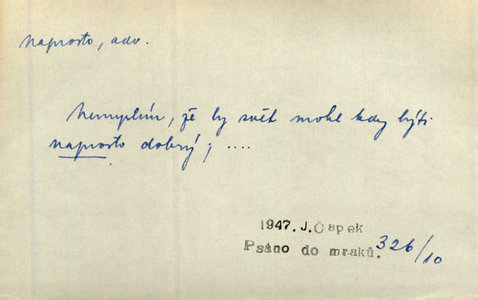 naprosto, adv.
Nemyslím, že by svět mohl kdy býti
naprosto dobrý; ....
1947. J. Čapek
Psáno do mraků. 326/10